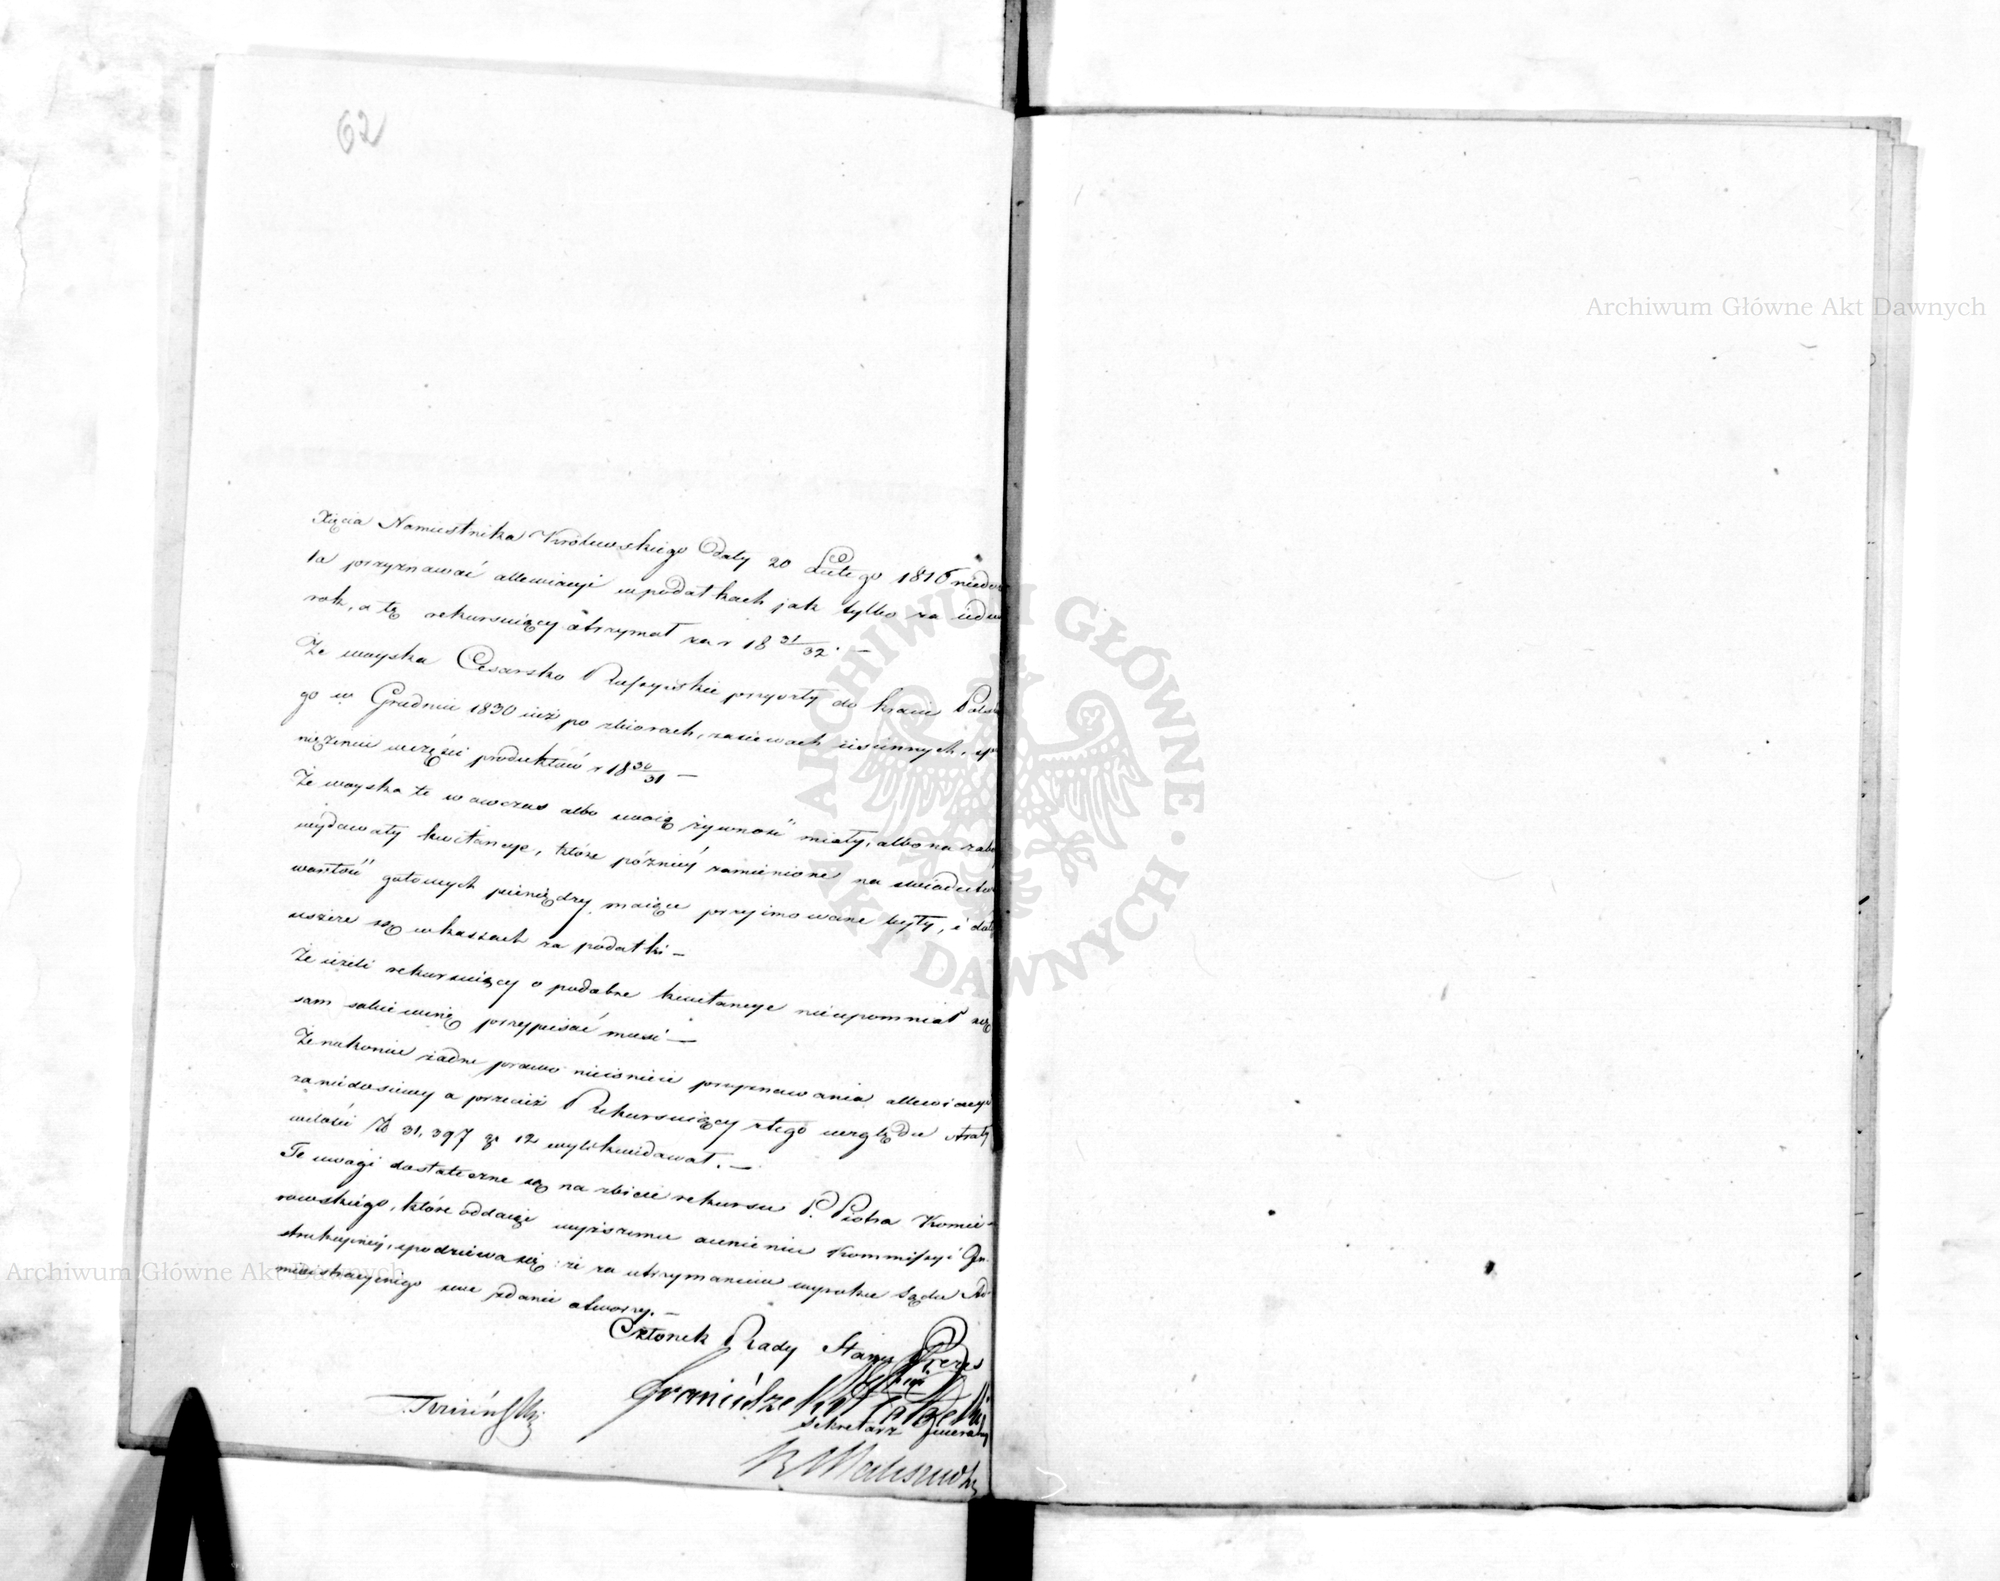 62
Xięcia Namiestnika Królewskiego Daty 20 Lutego 1816 niedoz
la przyznawać allewiacyi w podatkach jak tylko za ieden
rok, a tę rekursuiący otrzymał za r 18 31/32. —
Że woyska Cesarsko Rossyiskie przyszły do kraiu Polskie
go w Grudniu 1830 iuż po zbiorach, zasiewach iesiennych, sp
niężeniu części produktów r 18 30/31 —
Że woyska te wowczas albo swoią żywność miały, albo na zabr
wydawały kwitancye, które późniey zamienione na świadectw
wartość gotowych pieniędzy maiące przyimowane były, i dotą
ieszcze są w kassach za podatki —
Że ieżeli rekursuiący o podobne kwitancye nieupomniał się
sam sobie winę przypisać musi —
Że nakoniec żadne prawo nieistnieie przyznawania allewiacyi
za niedosiewy a przecież Rekursuiący z tego względu straty
wilości Zł 31,397 gr 12 wylikwidował. —
Te uwagi dostateczne są na zbicie rekursu P. Piotra Komie-
rowskiego, które oddaiąc wyższemu ocenieniu Kommissyi In-
strukcyiney, spodziewa się: że za utrzymaniem wyroku Sądu Ad-
ministracyinego swe zdanie otworzy. —
Członek Rady Stanu Prezes
Sekretarz Generalny
Archiwum Główne Akt Dawnych
Archiwum Główne Akt Dawnych
ARCHIWUM GŁÓWNE · AKT DAWNYCH ·